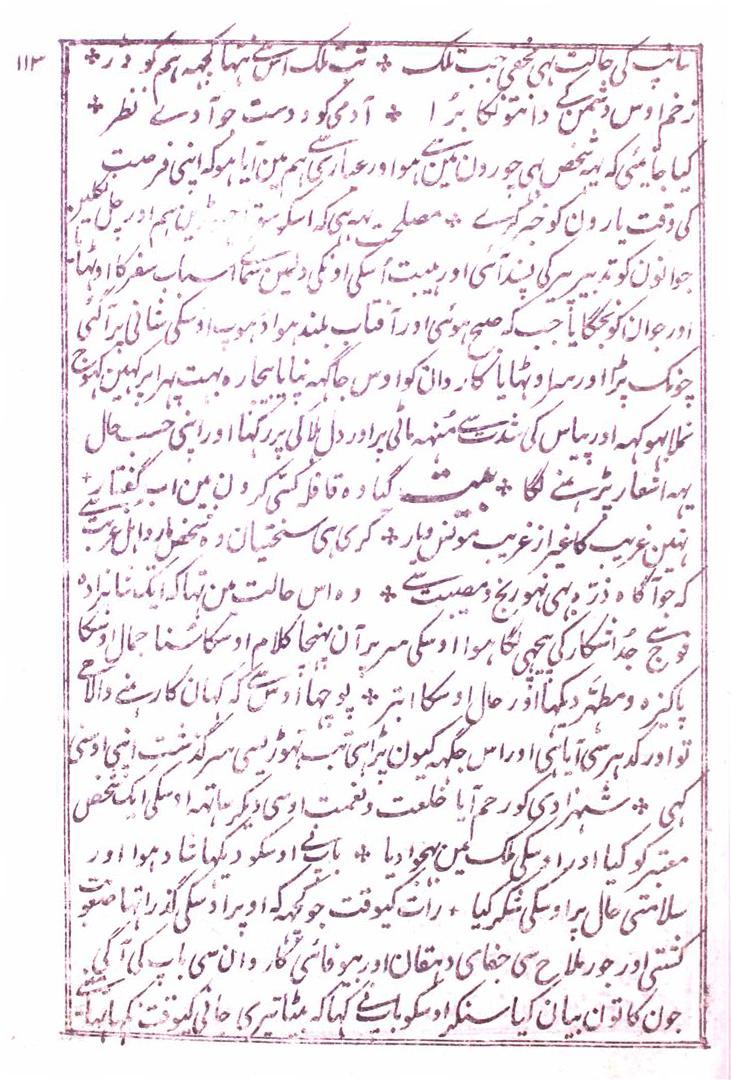 ۱۱۳
سانپ کی حالت ہی مخفی جب تلک ٭ تب تلک اس سے نتہا کچہہ ہم کو ڈر ٭
زخم اوس دشمن کے دانتو نکا برُا ٭ آدمی کو دوست جو آدے نظر ٭
کیا جانئی کہ یہہ شخص ہی چورون مین سے ہوا ور عیاری سے ہم مین آیا ہو کہ اپنی فرصت
کی وقت یارون کو خبر کرے ٭ مصلحت یہہ ہی کہ اسکو سوتا چہوڑین ہم اور چل نکلین
جوانون کو تدبیر پیر کی پسند آئی اور ہیبت اُسکی اونکی دلمین سمائے اسباب سفر کا اوٹہا
اور جوان کو نجگایا جب کہ صبح ہوئی اور آفتاب بلند ہوا دہوپ اوسکی شانی پر آگئی
چونک پڑا اور سر اوٹہایا کاروان کو اوس جاگہہ نپایا بیچارہ بہت پہرا پر کہین کہوج
نملا بہوکہہ اور پیاس کی شدت سے مُنہہ ماٹی پر اور دل ہلاکی پر رکہا اور اپنی حسب حال
یہہ اشعار پڑہنے لگا ٭ بیت گیا وہ قافلہ کسّی کرون مین اب گفتار ٭
نہین غریب کا غیر از غریب مونس و یار ٭ کری ہی سختیان وہ شخص بار اہل غربت سے
کہ جو آگاہ ذرّہ بہی نہو رنج و مصیبت سے ٭ وہ اس حالت مین تہا کہ ایک شاہزادہ
فوج سے جُدا شکار کی پیچہی لگا ہوا اوسکی سر پر آن پہنچا کلام اوسکا سُنا جمال اوسکا
پاکیزہ و مطہّر دیکہا اور حال اوسکا ابتر ٭ پوچہا اوس سے کہ کہان کا رہنے والا ہے
تو اور کدہر سی آیا ہی اور اس جگہہ کیون پڑا ہی تب تہوڑیسی سرگذشت اپنی اوسنی
کہی ٭ شہزادی کو رحم آیا خلعت و نعمت اوسی دیکر ساتہہ اوسکی ایک شخص
معتبر کو کیا اور اوسکی ملک مین بہجوادیا ٭ باپ نے اوسکو دیکہا شاد ہوا اور
سلامتی حال پر اوسکی شکر کیا ٭ رات کیوقت جو کچہہ کہ اوپر اوسکی گذرا تہا صعوبت
کشتی اور جور ملّاح سی جفای دہقان اور بیوفائی کاروان سی باپ کی آگی
جون کا تون بیان کیا سنکر اوسکو باپ نے کہا کہ بیٹا تیری جانی کیوقت